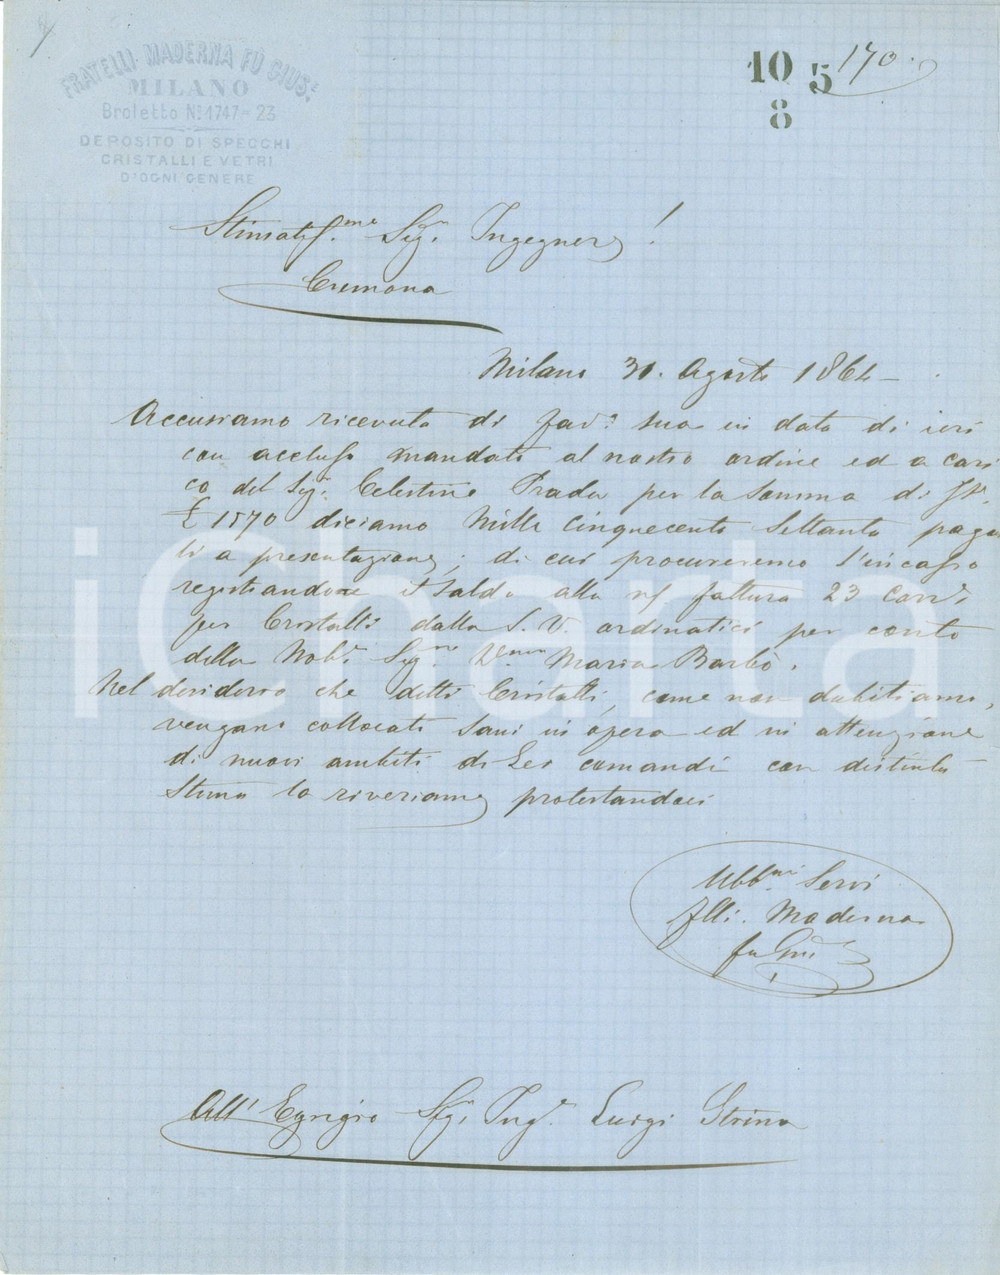 FRATELLI MADERNA FÙ GIUS.e
MILANO
Broletto No. 1747=23
DEPOSITO DI SPECCHI
CRISTALLI E VETRI
D'OGNI GENERE
10 5 170.
8
Stimatiss.mo Sigr. Ingegnere!
Cremona
Milano 31. Agosto 1864
Accusiamo ricevuta di fav.a sua in data di ieri
con accluso mandato al nostro ordine ed a cari
co del Sigr. Celestino Prada per la somma di It.
£ 1570 diciamo Mille Cinquecento Settanta paga
li a presentazione; di cui procureremo l'incasso
registrandone il saldo alla n/ fattura 23 corr.e
per Cristalli dalla S. V. ordinatici per conto
della Nob. Sig.ra Maria Barbò.
Nel desiderio che detti Cristalli, come non dubitiamo,
vengano collocati sani in opera ed in attenzione
di nuovi ambiti di Lei comandi con distinta
Stima la riveriamo protestandoci
Ubb.mi Servi
flli. Maderna
fu Gius.e
All' Egregio Sigr. Ing.e Luigi Strina
iCharta